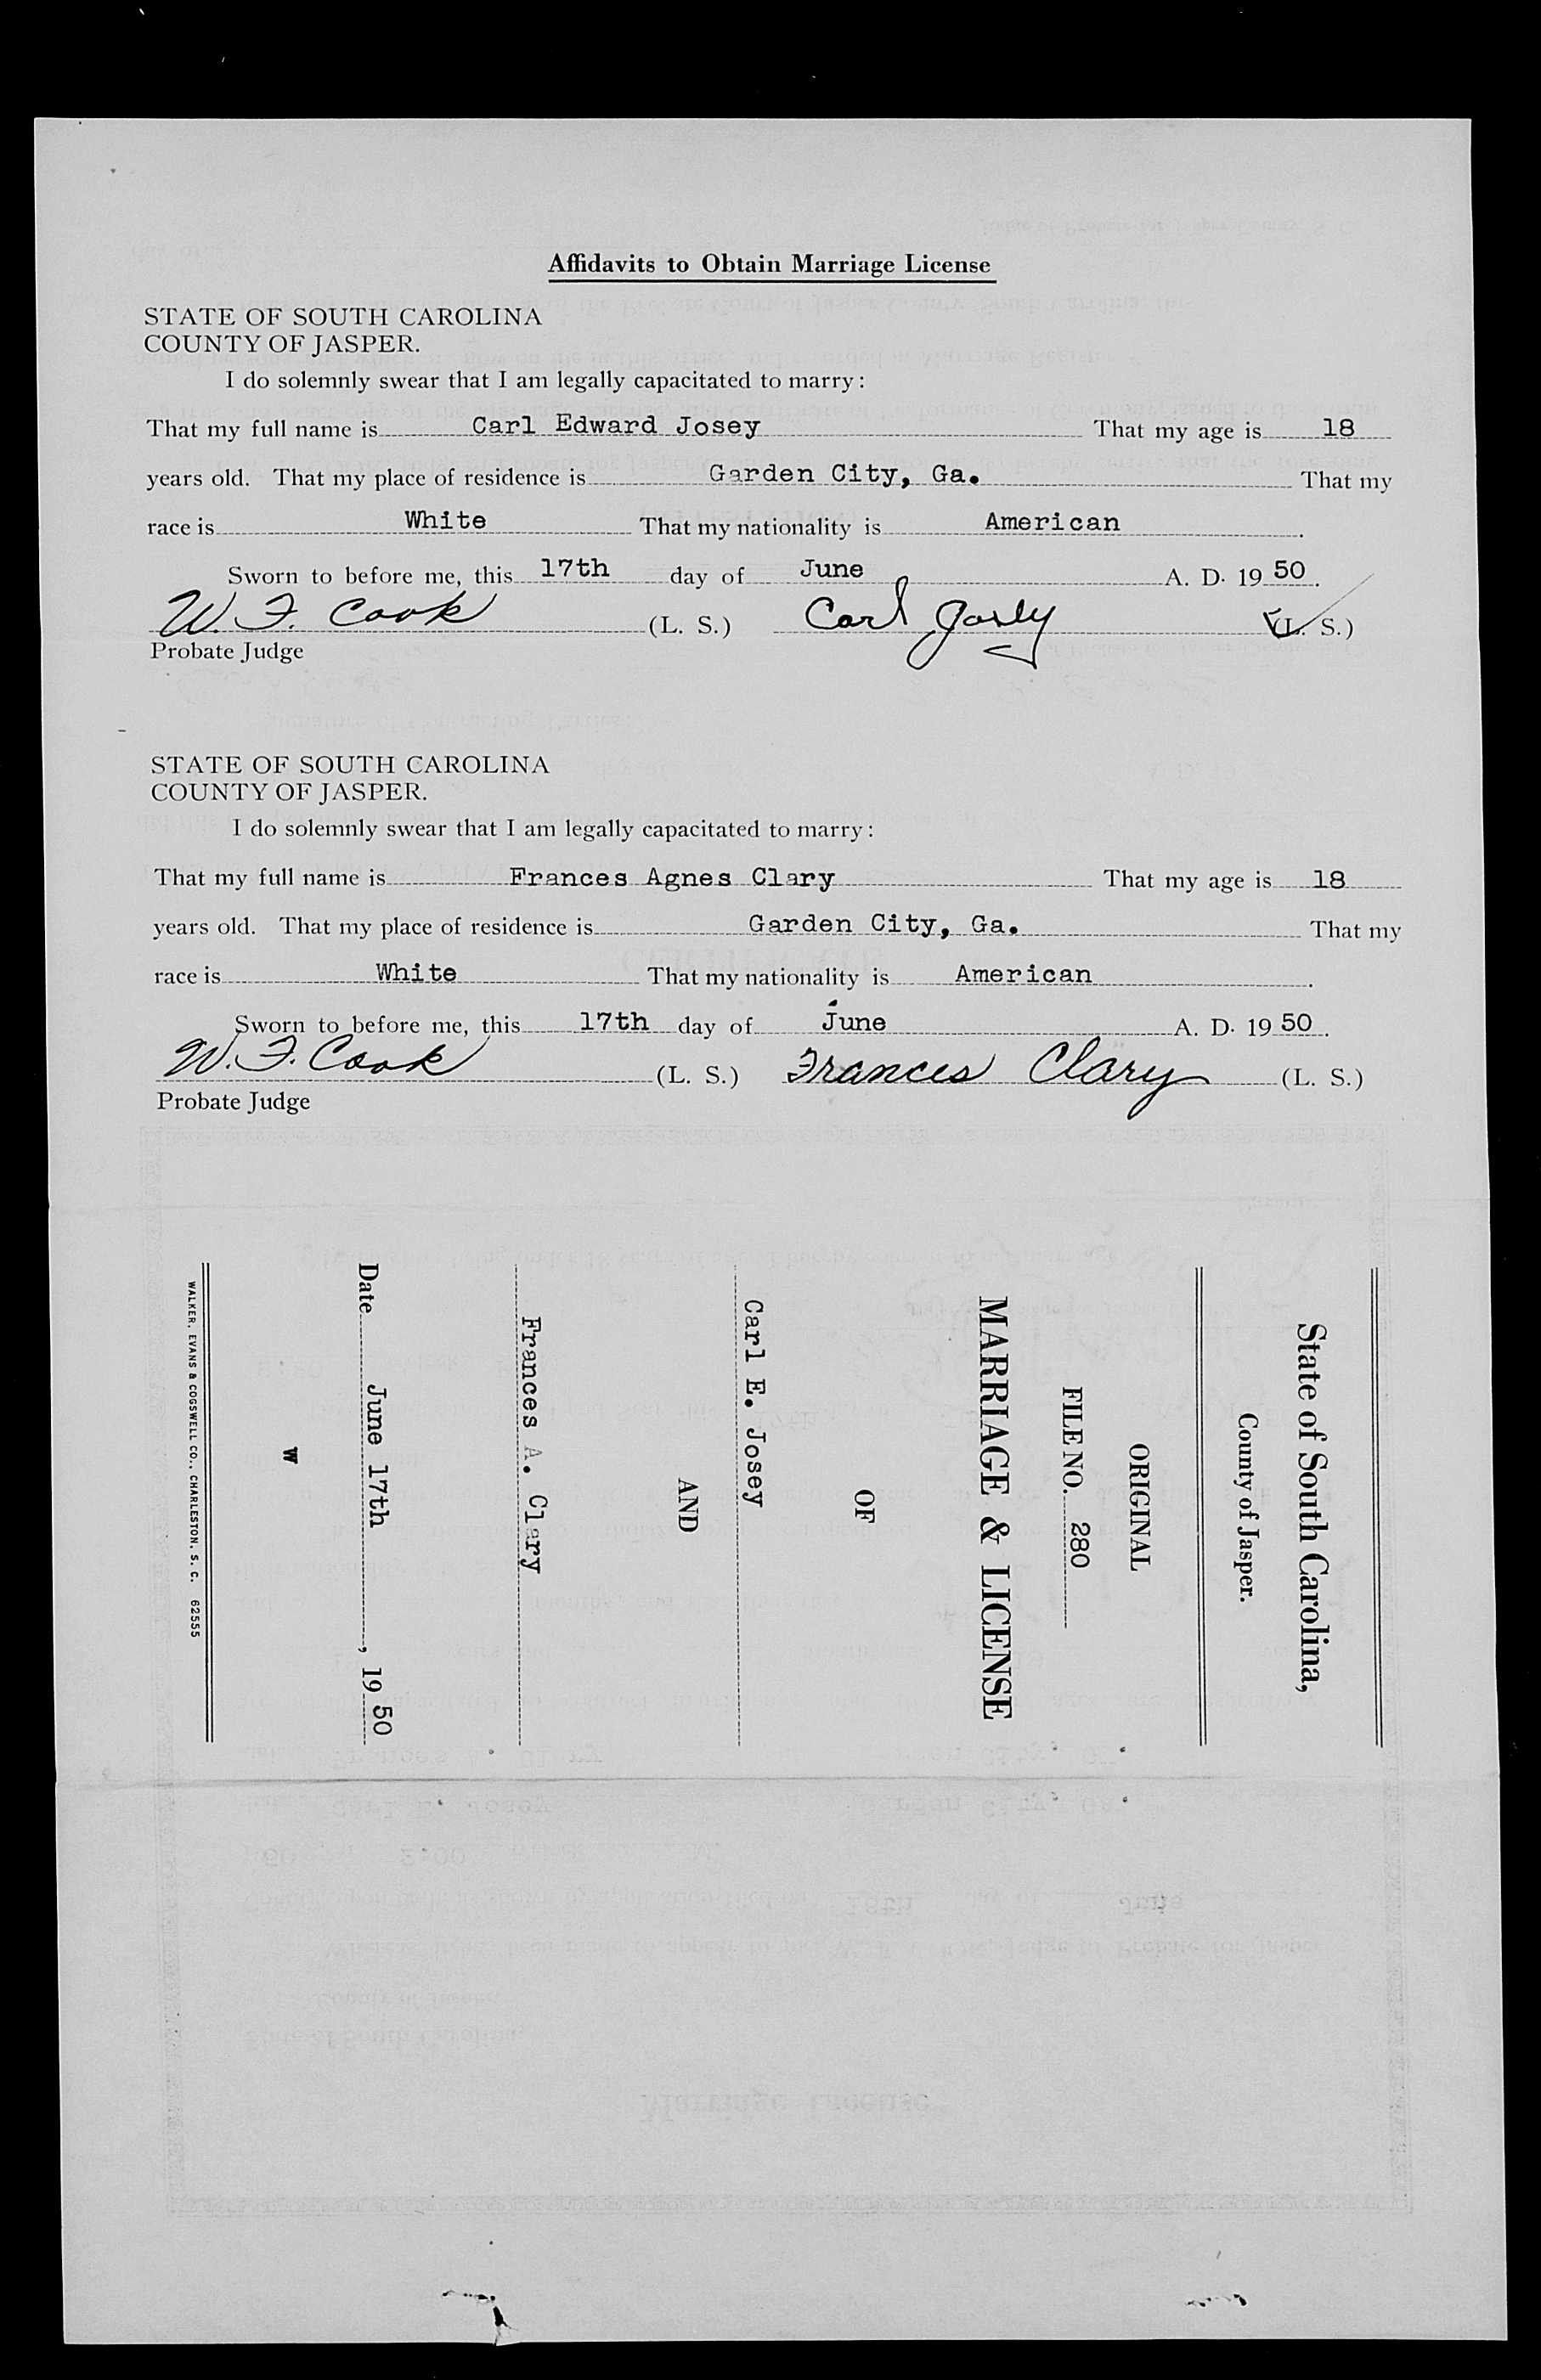 Affidavits to Obtain Marriage License
STATE OF SOUTH CAROLINA
COUNTY OF JASPER.
I do solemnly swear that I am legally capacitated to marry:
That my full name is Carl Edward Josey That my age is 18
years old. That my place of residence is Garden City, Ga. That my
race is White That my nationality is American.
Sworn to before me, this 17th day of June A. D. 19 50.
W. F. Cook (L. S.) Carl Josey (L. S.)
Probate Judge
STATE OF SOUTH CAROLINA
COUNTY OF JASPER.
I do solemnly swear that I am legally capacitated to marry:
That my full name is Frances Agnes Clary That my age is 18
years old. That my place of residence is Garden City, Ga. That my
race is White That my nationality is American.
Sworn to before me, this 17th day of June A. D. 19 50.
W. F. Cook (L. S.) Frances Clary (L. S.)
Probate Judge
State of South Carolina,
County of Jasper.
ORIGINAL
FILE NO. 280
MARRIAGE & LICENSE
OF
Carl E. Josey
AND
Frances A. Clary
Date June 17th, 19 50
W
WALKER, EVANS & COGSWELL CO., CHARLESTON, S. C. 62555